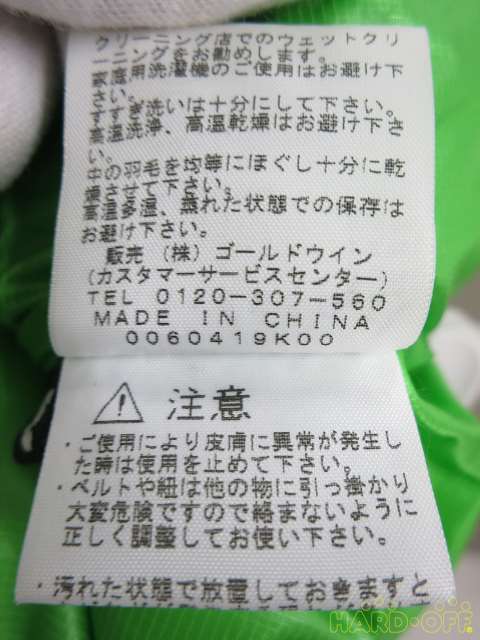 クリーニング店でのウェットクリ
ーニングをお勧めします。
家庭用洗濯機のご使用はお避け下
さい。
すすぎ洗いは十分にして下さい。
高温洗浄、高温乾燥はお避け下さ
い。
中の羽毛を均等にほぐし十分に乾
燥させて下さい。
高温多湿、蒸れた状態での保存は
お避け下さい。
販売(株)ゴールドウイン
(カスタマーサービスセンター)
TEL 0120-307-560
MADE IN CHINA
0060419K00
注意
・ご使用により皮膚に異常が発生し
た時は使用を止めて下さい。
・ベルトや紐は他の物に引っ掛かり
大変危険ですので絡まないように
正しく調整してお使い下さい。
・汚れた状態で放置しておきますと
HARD・OFF